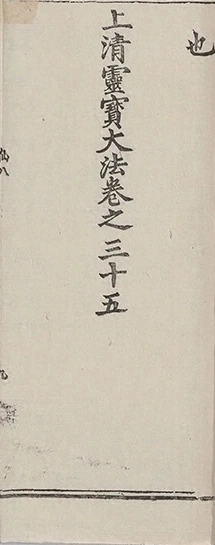 也
上清靈寶大法卷之三十五
仙八